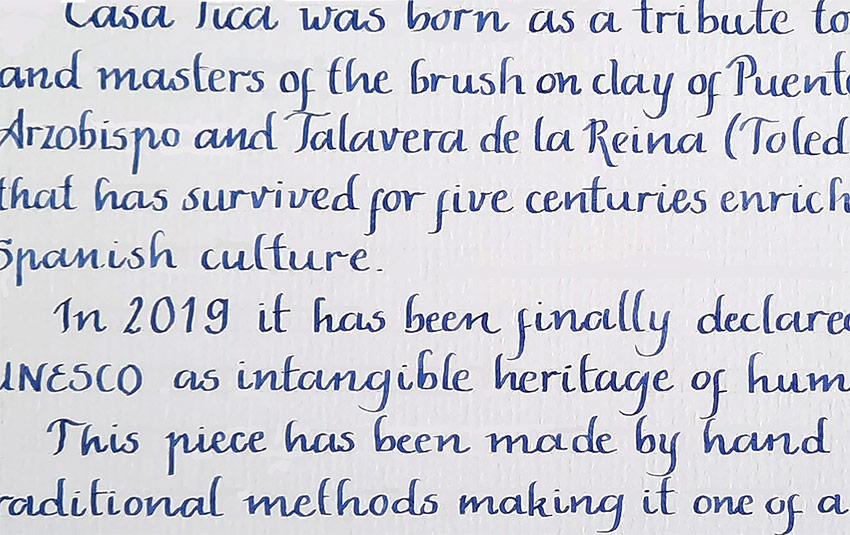 Casa Tica was born as a tribute to
and masters of the brush on clay of Puente
Arzobispo and Talavera de la Reina (Toled
that has survived for five centuries enrich
Spanish culture.
In 2019 it has been finally declared
UNESCO as intangible heritage of hum
This piece has been made by hand
raditional methods making it one of a